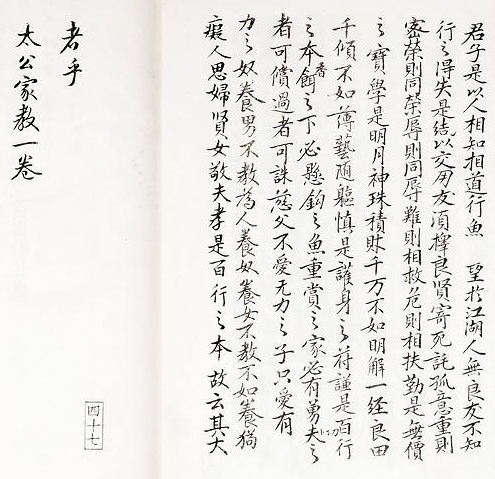 君子是以人相知相道行魚　望於江湖人無良友不知
行之得失是結以交朋友須擇良賢寄死託孤意重則
密榮則同榮辱則同辱難則相救危則相扶勤是無價
之寶學是明月神珠積財千万不如明解一経良田
千傾不如薄藝随軀慎是護身之符謹是百行
之本香餌之下必懸鈎之魚重賞之家必有勇夫之
者可償過者可誅慈父不愛无力之子只愛有
力之奴養男不教為人養奴養女不教不如養猫
癡人思婦賢女敬夫孝是百行之本故云其大
者乎
太公家教一卷
四十七